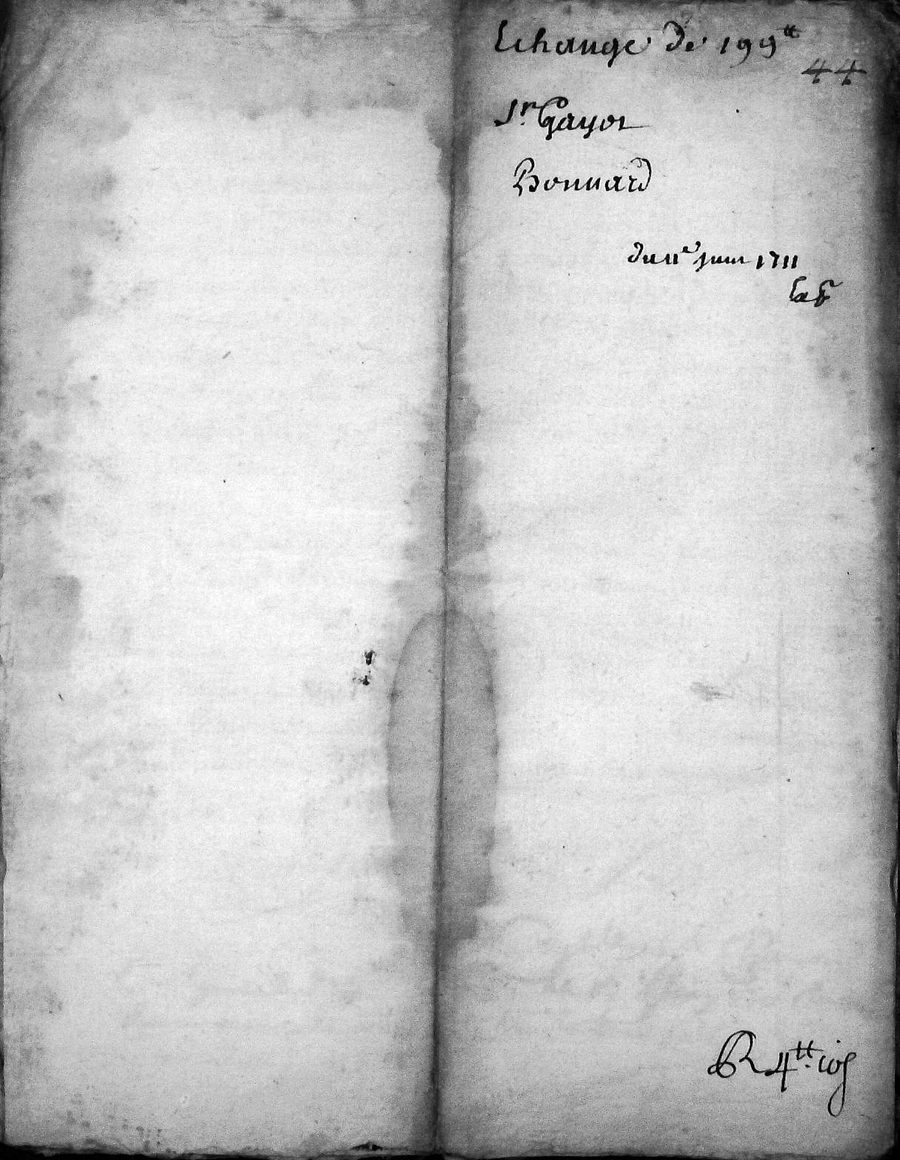 Echange de 199tt
44
Sr Gayot
Bonnard
du 11e Juin 1711
R 4tt